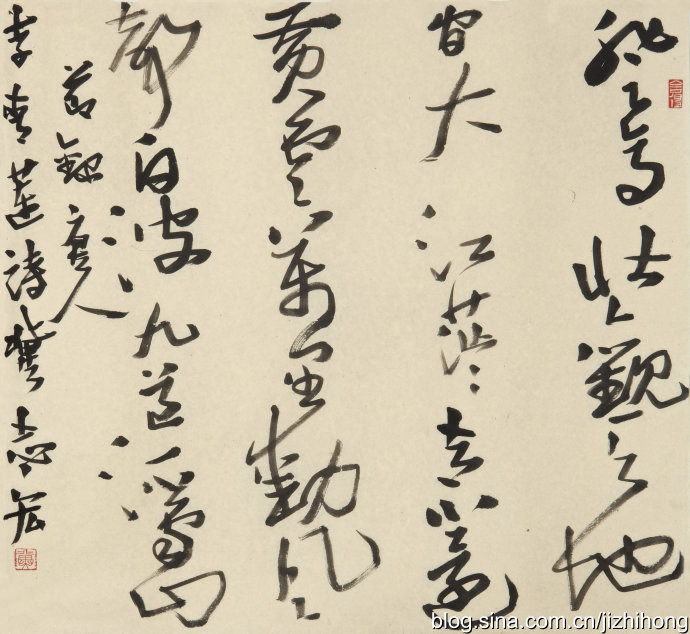 登高壯觀天地
間大江茫茫去不還
黄雲萬里動風
白波九道流雪山
節録唐人
李青蓮詩冀志宏
blog.sina.com.cn/jizhihong